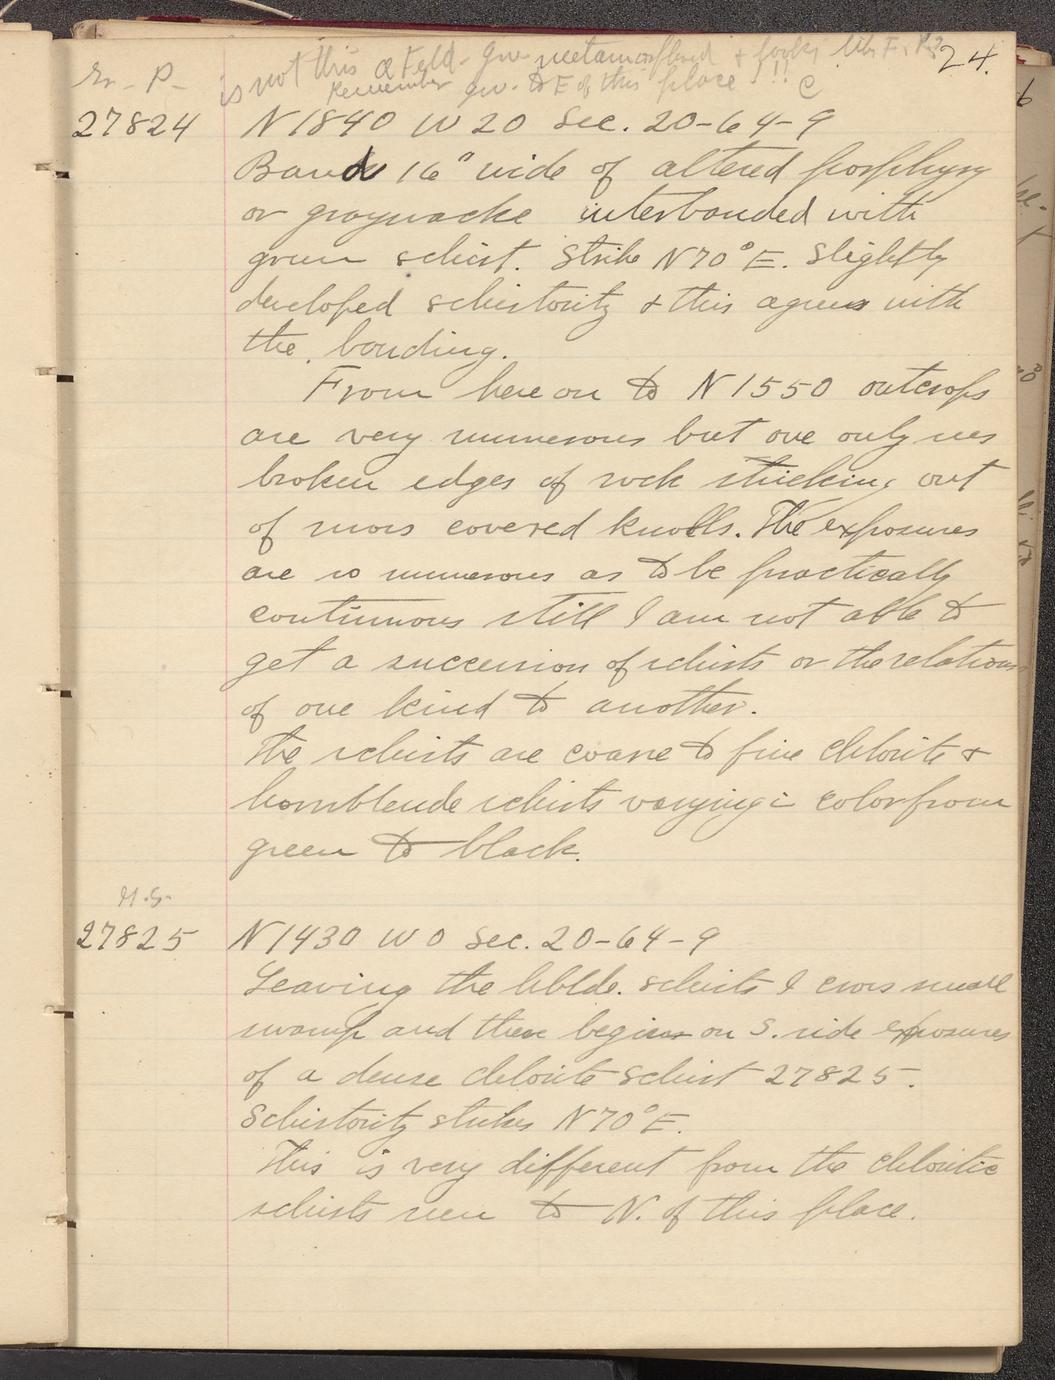 is not this a Feld. gw. metamorphosed & looks like F. P.?
24.
Remember gw. to E of this place !!! C
Gr. P.
27824 N 1840 W 20 Sec. 20-64-9
Bands 16" wide of altered porphyry
or graywacke interbanded with
green schist. Strike N70°E. Slightly
developed schistosity & this agrees with
the banding.
From here on to N 1550 outcrops
are very numerous but one only sees
broken edges of rock sticking out
of moss covered knolls. The exposures
are so numerous as to be practically
continuous still I am not able to
get a succession of schists or the relations
of one kind to another.
The schists are coarse to fine chlorite &
hornblende schists varying in color from
green to black.
27825 N 1430 W 0 Sec. 20-64-9
Leaving the hblde. schists I cross small
swamp and there begins on S. side exposures
of a dense chlorite schist 27825.
Schistosity strikes N70°E.
This is very different from the chloritic
schists seen to N. of this place.